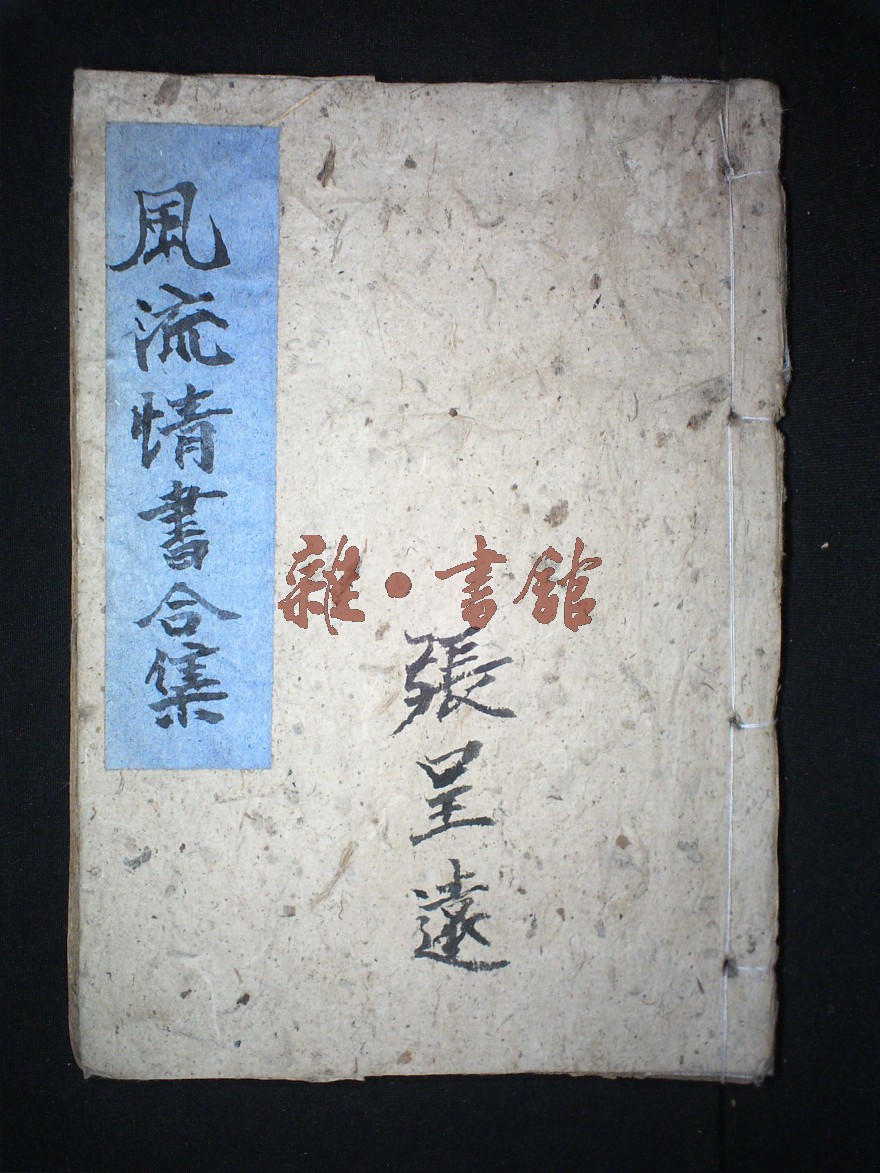 風流情書合集
雜·書館
張呈遠